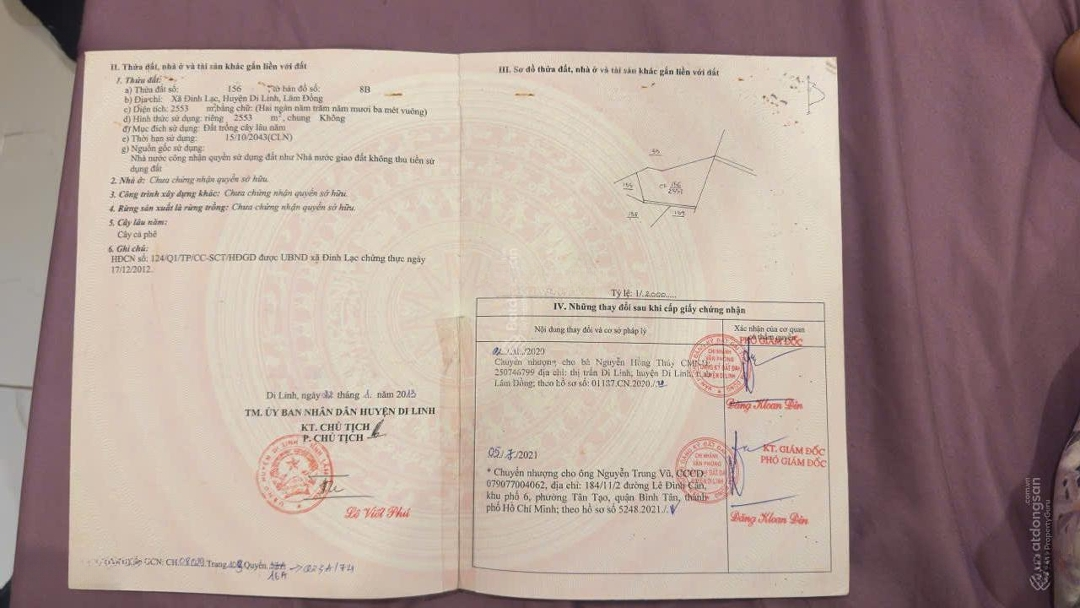 II. Thửa đất, nhà ở và tài sản khác gắn liền với đất
1. Thửa đất:
a) Thửa đất số: 156 Tờ bản đồ số: 8B
b) Địa chỉ: Xã Đinh Lạc, Huyện Di Linh, Lâm Đồng
c) Diện tích: 2553 m², bằng chữ: (Hai ngàn năm trăm năm mươi ba mét vuông)
d) Hình thức sử dụng: riêng 2553 m², chung Không
đ) Mục đích sử dụng: Đất trồng cây lâu năm
e) Thời hạn sử dụng: 15/10/2043(CLN)
g) Nguồn gốc sử dụng:
Nhà nước công nhận quyền sử dụng đất như Nhà nước giao đất không thu tiền sử
dụng đất
2. Nhà ở: Chưa chứng nhận quyền sở hữu.
3. Công trình xây dựng khác: Chưa chứng nhận quyền sở hữu.
4. Rừng sản xuất là rừng trồng: Chưa chứng nhận quyền sở hữu.
5. Cây lâu năm:
Cây cà phê
6. Ghi chú:
HĐCN số: 124/Q1/TP/CC-SCT/HĐGD được UBND xã Đinh Lạc chứng thực ngày
17/12/2012.
Di Linh, ngày tháng 1. năm 2013
TM. ỦY BAN NHÂN DÂN HUYỆN DI LINH
KT. CHỦ TỊCH
P. CHỦ TỊCH
Lê Viết Phú
GCN: CH Trang Quyển
III. Sơ đồ thửa đất, nhà ở và tài sản khác gắn liền với đất
156
156
Tỷ lệ: 1/2000
IV. Những thay đổi sau khi cấp giấy chứng nhận
Nội dung thay đổi và cơ sở pháp lý
Xác nhận của cơ quan
có thẩm quyền
PHÓ GIÁM ĐỐC
/2020
Chuyển nhượng cho bà Nguyễn Hồng Thúy CMND
250746799 địa chỉ: thị trấn Di Linh, huyện Di Linh, tỉnh
Lâm Đồng; theo hồ sơ số: 01137.CN.2020./.
Đăng Kloan Đên
05/7/2021
KT. GIÁM ĐỐC
PHÓ GIÁM ĐỐC
* Chuyển nhượng cho ông Nguyễn Trung Vũ, CCCD:
079077004062, địa chỉ: 184/11/2 đường Lê Đình Cẩn,
khu phố 6, phường Tân Tạo, quận Bình Tân, thành
phố Hồ Chí Minh; theo hồ sơ số 5248.2021./.
Đăng Kloan Đên
batdongsan.com.vn
by PropertyGuru